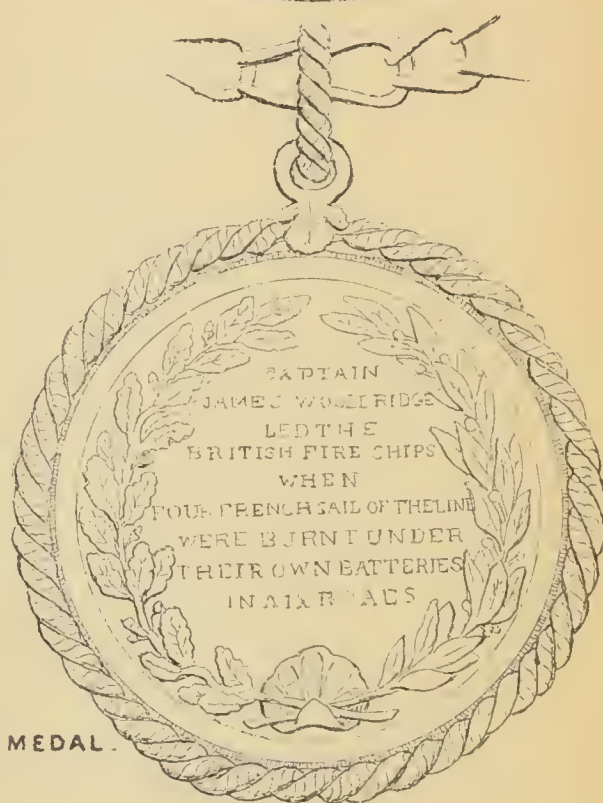 CAPTAIN
JAMES WOOLDRIDGE
LED THE
BRITISH FIRE SHIPS
WHEN
FOUR FRENCH SAIL OF THE LINE
WERE BURNT UNDER
THEIR OWN BATTERIES
IN AIX ROADS
MEDAL.